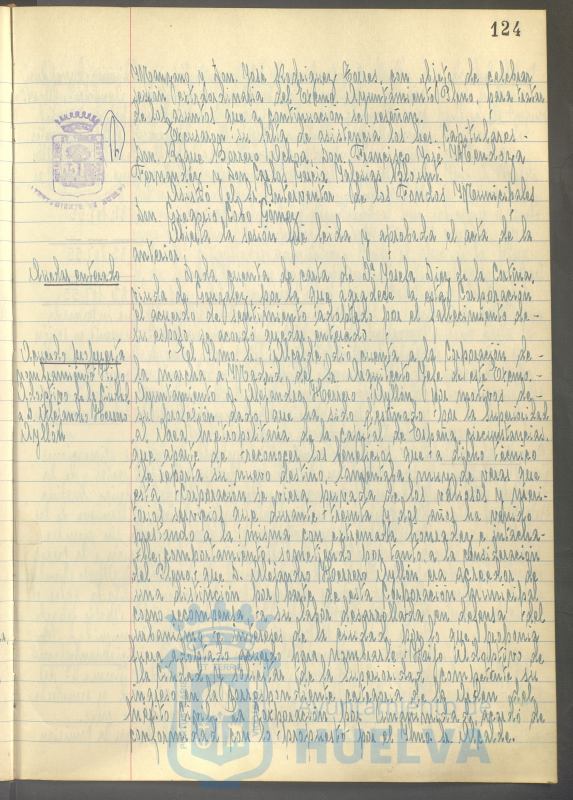 124
Manzano y Don José Rodriguez Torres, con objeto de celebrar
sesión extraordinaria del Excmo Ayuntamiento Pleno, para tratar
de los asuntos que a continuación se reseñan.
Excusaron su falta de asistencia los Sres. Capitulares
Don Roque Barrero Ochoa, Don Francisco José Mendoza
Fernandez y Don Carlos Garcia
Asistió el Sr. Interventor de los Fondos Municipales
Don Gregorio Cobo Gómez
Abierta la sesión fué leida y aprobada el acta de la
anterior.
Quedar enterado
Dada cuenta de carta de Dª Josefa Diez de la Cortina,
viuda de Gonzalez, por la que agradece a esta Corporación
el acuerdo de sentimiento adoptado por el fallecimiento de
su esposo, se acordó quedar enterado.
Acuerdo propuesta
nombramiento Hijo
Adoptivo de la Ciudad
a D. Alejandro Herrero
Ayllón
El Iltmo Sr. Alcalde dió cuenta a la Corporación de
la marcha a Madrid del Sr. Arquitecto Jefe de este Excmo.
Ayuntamiento D. Alejandro Herrero Ayllón, por motivos de
su profesión, dado que ha sido destinado por la Superioridad
al Area Metropolitana de la capital de España, circunstancias
que aparte de reconocer los beneficios que a dicho técnico
le reporta su nuevo destino, lamentaba muy de veras que
esta Corporación se viera privada de los valiosos y meri-
torios servicios que durante treinta y dos años ha venido
prestando a la misma con extremada honradez e intacha-
ble comportamiento, sometiendo por tanto a la consideración
del Pleno que D. Alejandro Herrero Ayllón era acreedor de
una distinción por parte de esta Corporación municipal
como recompensa a su labor desarrollada en defensa del
urbanismo e intereses de la ciudad, por lo que proponia
fuera adoptado acuerdo para nombrarle Hijo Adoptivo de
la Ciudad y solicitar de la Superioridad competente, su
ingreso en la correspondiente categoria de la Orden del
Mérito Civil. La Corporación por unanimidad, acordó de
conformidad con lo propuesto por el Iltmo Sr. Alcalde.
Ayuntamiento de
HUELVA